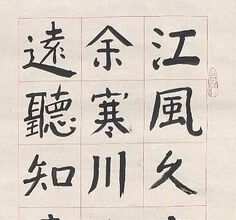 江風久
余寒川
遠聽知